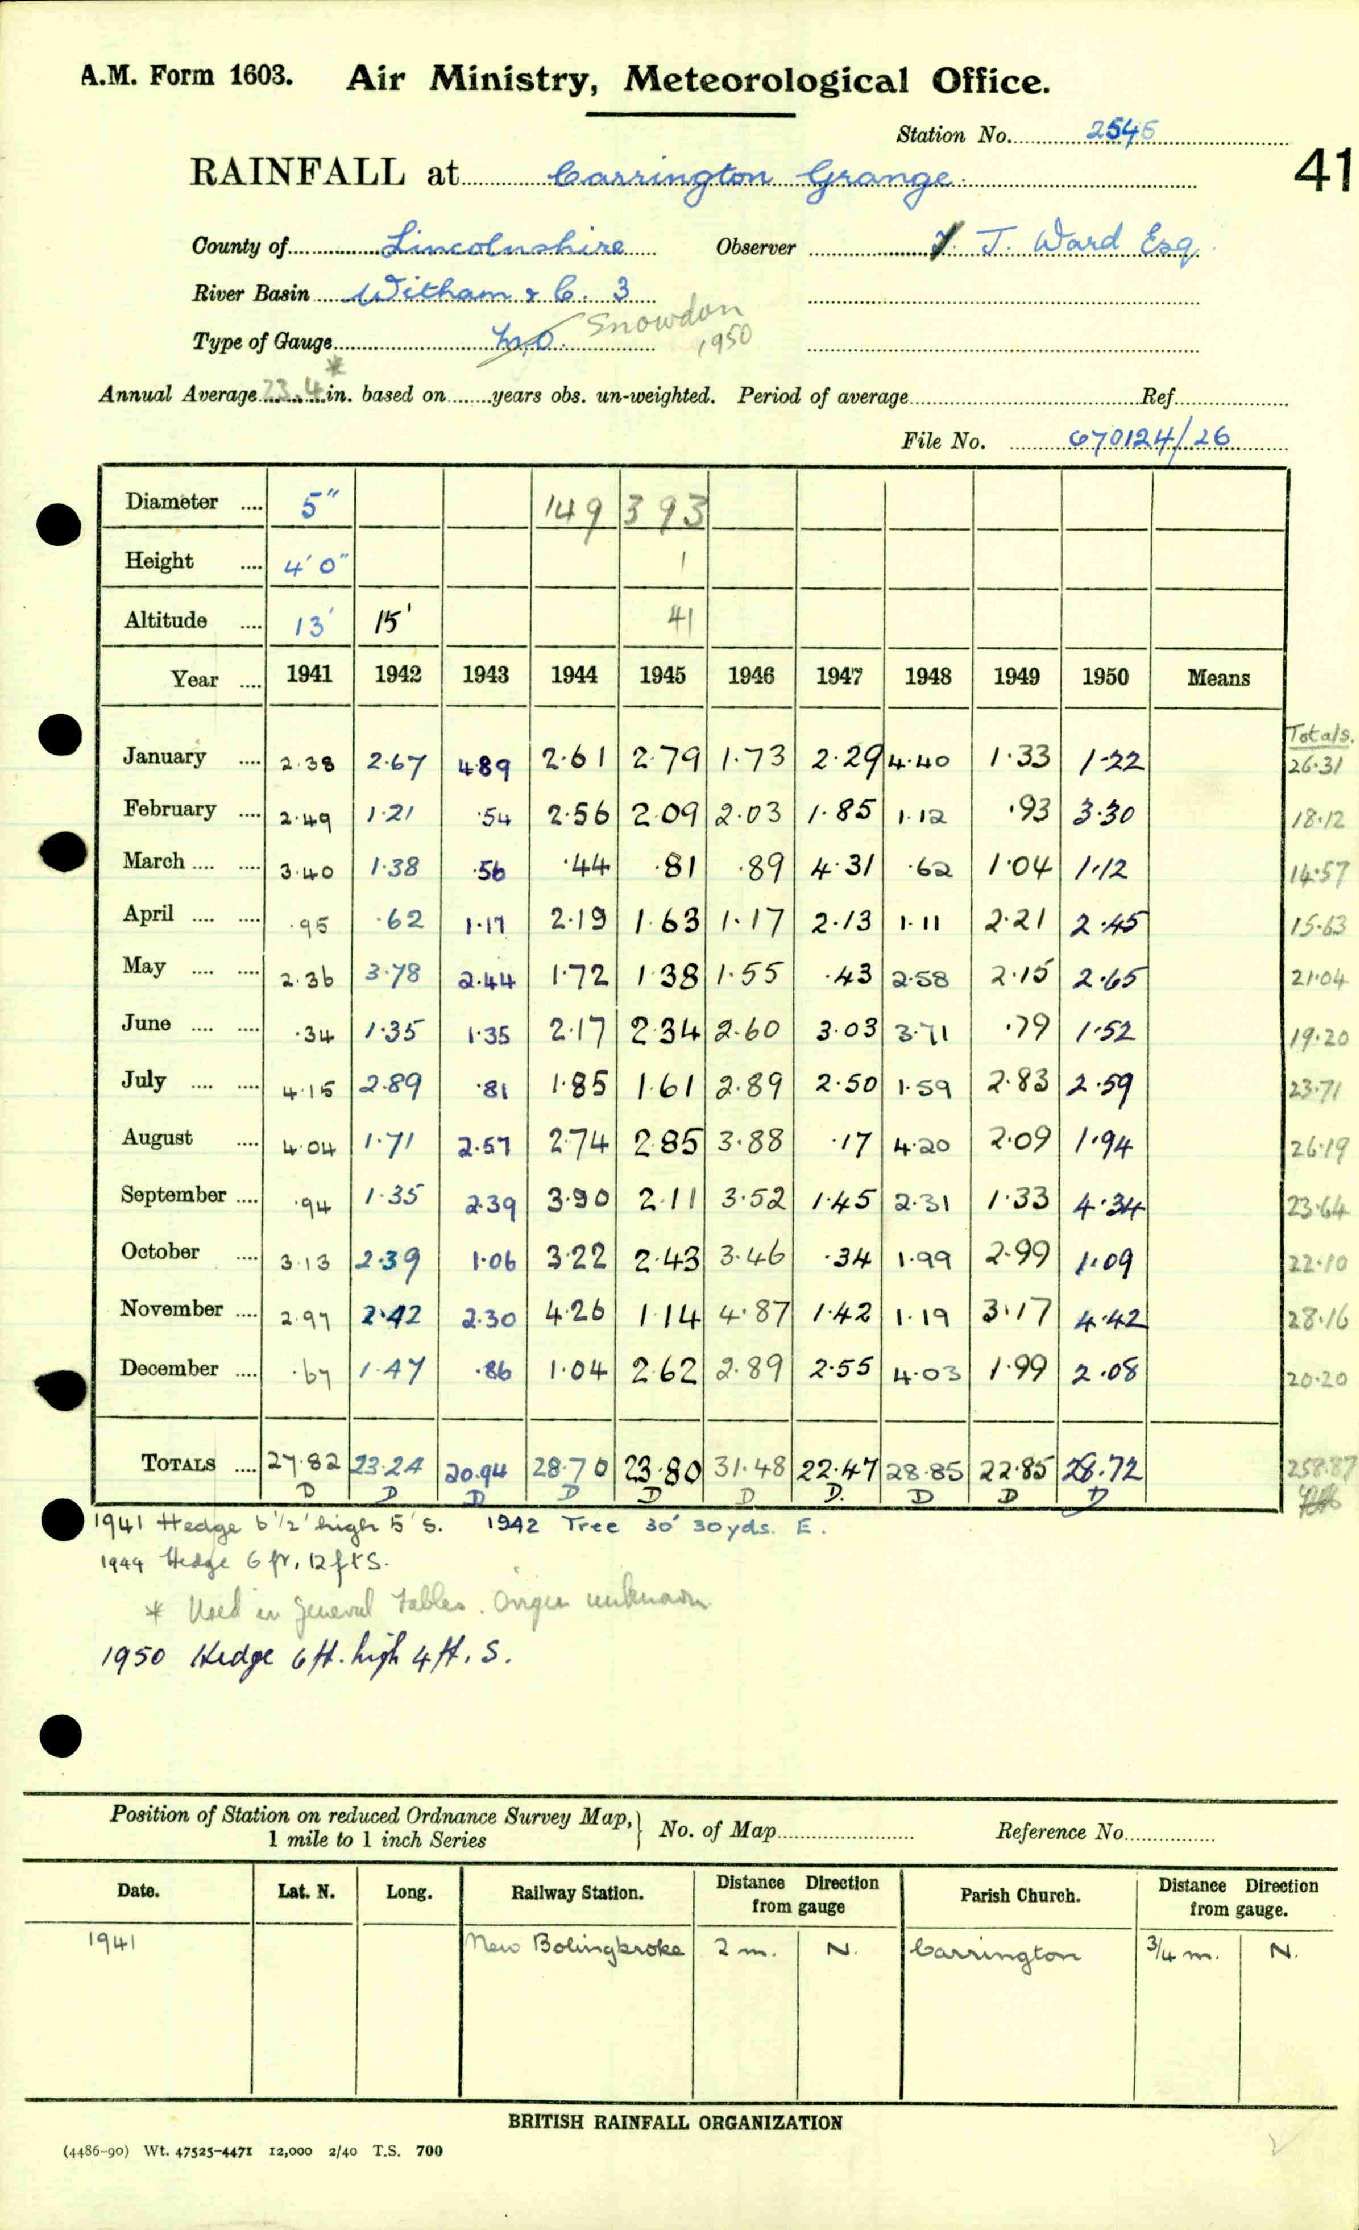 A.M. Form 1603. Air Ministry, Meteorological Office.
Station No. 2545
41
RAINFALL at Carrington Grange.
County of Lincolnshire Observer J. Ward Esq.
River Basin Witham & C. 3
Type of Gauge M.O. Snowdon 1950
Annual Average 23.4* in. based on years obs. un-weighted. Period of average Ref.
File No. 670124/26
Diameter .... 5" 149 393
Height .... 4' 0" 1
Altitude .... 13' 15' 41
Year .... 1941 1942 1943 1944 1945 1946 1947 1948 1949 1950 Means
Totals.
January .... 2.38 2.67 4.89 2.61 2.79 1.73 2.29 4.40 1.33 1.22 26.31
February .... 2.49 1.21 .54 2.56 2.09 2.03 1.85 1.12 .93 3.30 18.12
March .... .... 3.40 1.38 .56 .44 .81 .89 4.31 .62 1.04 1.12 14.57
April .... .... .95 .62 1.17 2.19 1.63 1.17 2.13 1.11 2.21 2.45 15.63
May .... .... 2.36 3.78 2.44 1.72 1.38 1.55 .43 2.58 2.15 2.65 21.04
June .... .... .34 1.35 1.35 2.17 2.34 2.60 3.03 3.71 .79 1.52 19.20
July .... .... 4.15 2.89 .81 1.85 1.61 2.89 2.50 1.59 2.83 2.59 23.71
August .... 4.04 1.71 2.57 2.74 2.85 3.88 .17 4.20 2.09 1.94 26.19
September .... .94 1.35 2.39 3.90 2.11 3.52 1.45 2.31 1.33 4.34 23.64
October .... 3.13 2.39 1.06 3.22 2.43 3.46 .34 1.99 2.99 1.09 22.10
November .... 2.97 2.42 2.30 4.26 1.14 4.87 1.42 1.19 3.17 4.42 28.16
December .... .67 1.47 .86 1.04 2.62 2.89 2.55 4.03 1.99 2.08 20.20
TOTALS .... 27.82 23.24 20.94 28.70 23.80 31.48 22.47 28.85 22.85 28.72 258.87
D D D D D D D. D D D
1941 Hedge 6 1/2' high 5' S. 1942 Tree 30' 30yds. E.
1944 Hedge 6 ft, 12 ft S.
* Used in General Tables. Origin unknown
1950 Hedge 6ft. high 4ft. S.
Position of Station on reduced Ordnance Survey Map, 1 mile to 1 inch Series } No. of Map Reference No.
Date. Lat. N. Long. Railway Station. Distance Direction from gauge Parish Church. Distance Direction from gauge.
1941 New Bolingbroke 2 m. N. Carrington 3/4 m. N.
BRITISH RAINFALL ORGANIZATION
(4486-90) Wt. 47525-4471 12,000 2/40 T.S. 700